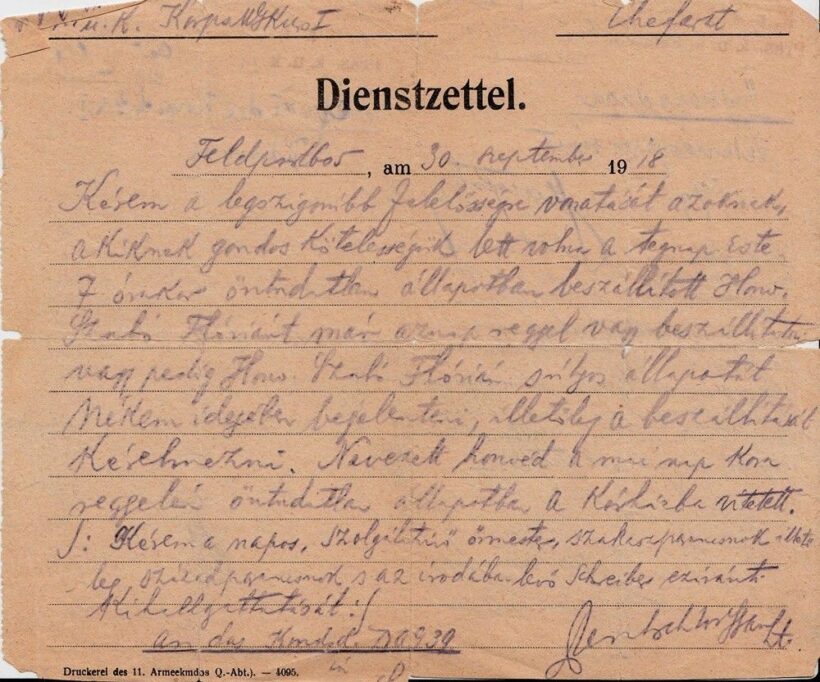 u. K. Korps Chefarzt
Dienstzettel.
Feldpostbos, am 30. September 1918
Kérem a legszigorúbb felelősségre vonatását azoknak,
akiknek gondos kötelességük lett volna a tegnap este
7 órakor öntudatlan állapotban beszállított Honv.
Szabó Flóriánt már aznap reggel vagy beszállítatni
vagy pedig Honv. Szabó Flórián súlyos állapotát
nékem idejében bejelenteni, illetőleg a beszállítását
kérelmezni. Nevezett honvéd a mai nap kora
reggelén öntudatlan állapotban a kórházba vitetett.
/: Kérem a napos, szolgálattevő őrmester, szakaszparancsnok illető-
leg századparancsnok s az irodában levő Schreiber eziránti
kihallgattatását :/
an das Kondsd. D 0939
in
Druckerei des 11. Armeekmdos Q.-Abt.). — 4095.